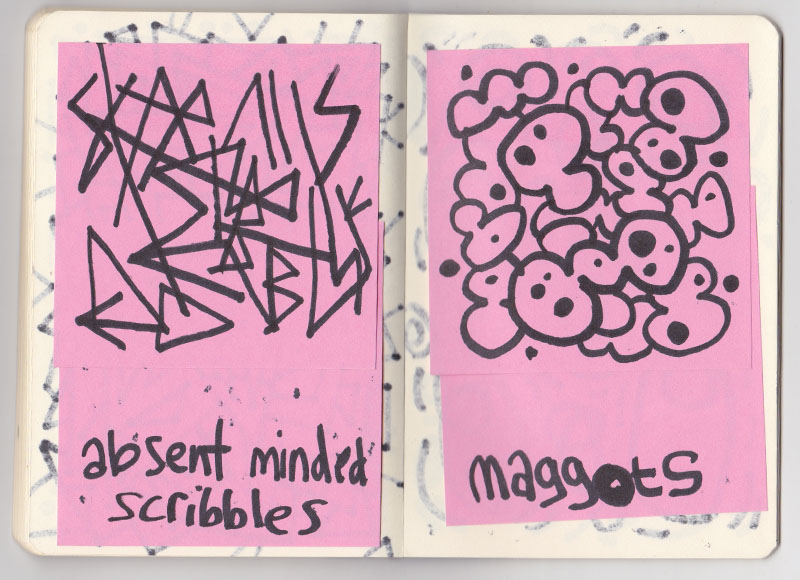 absent minded
scribbles
maggots